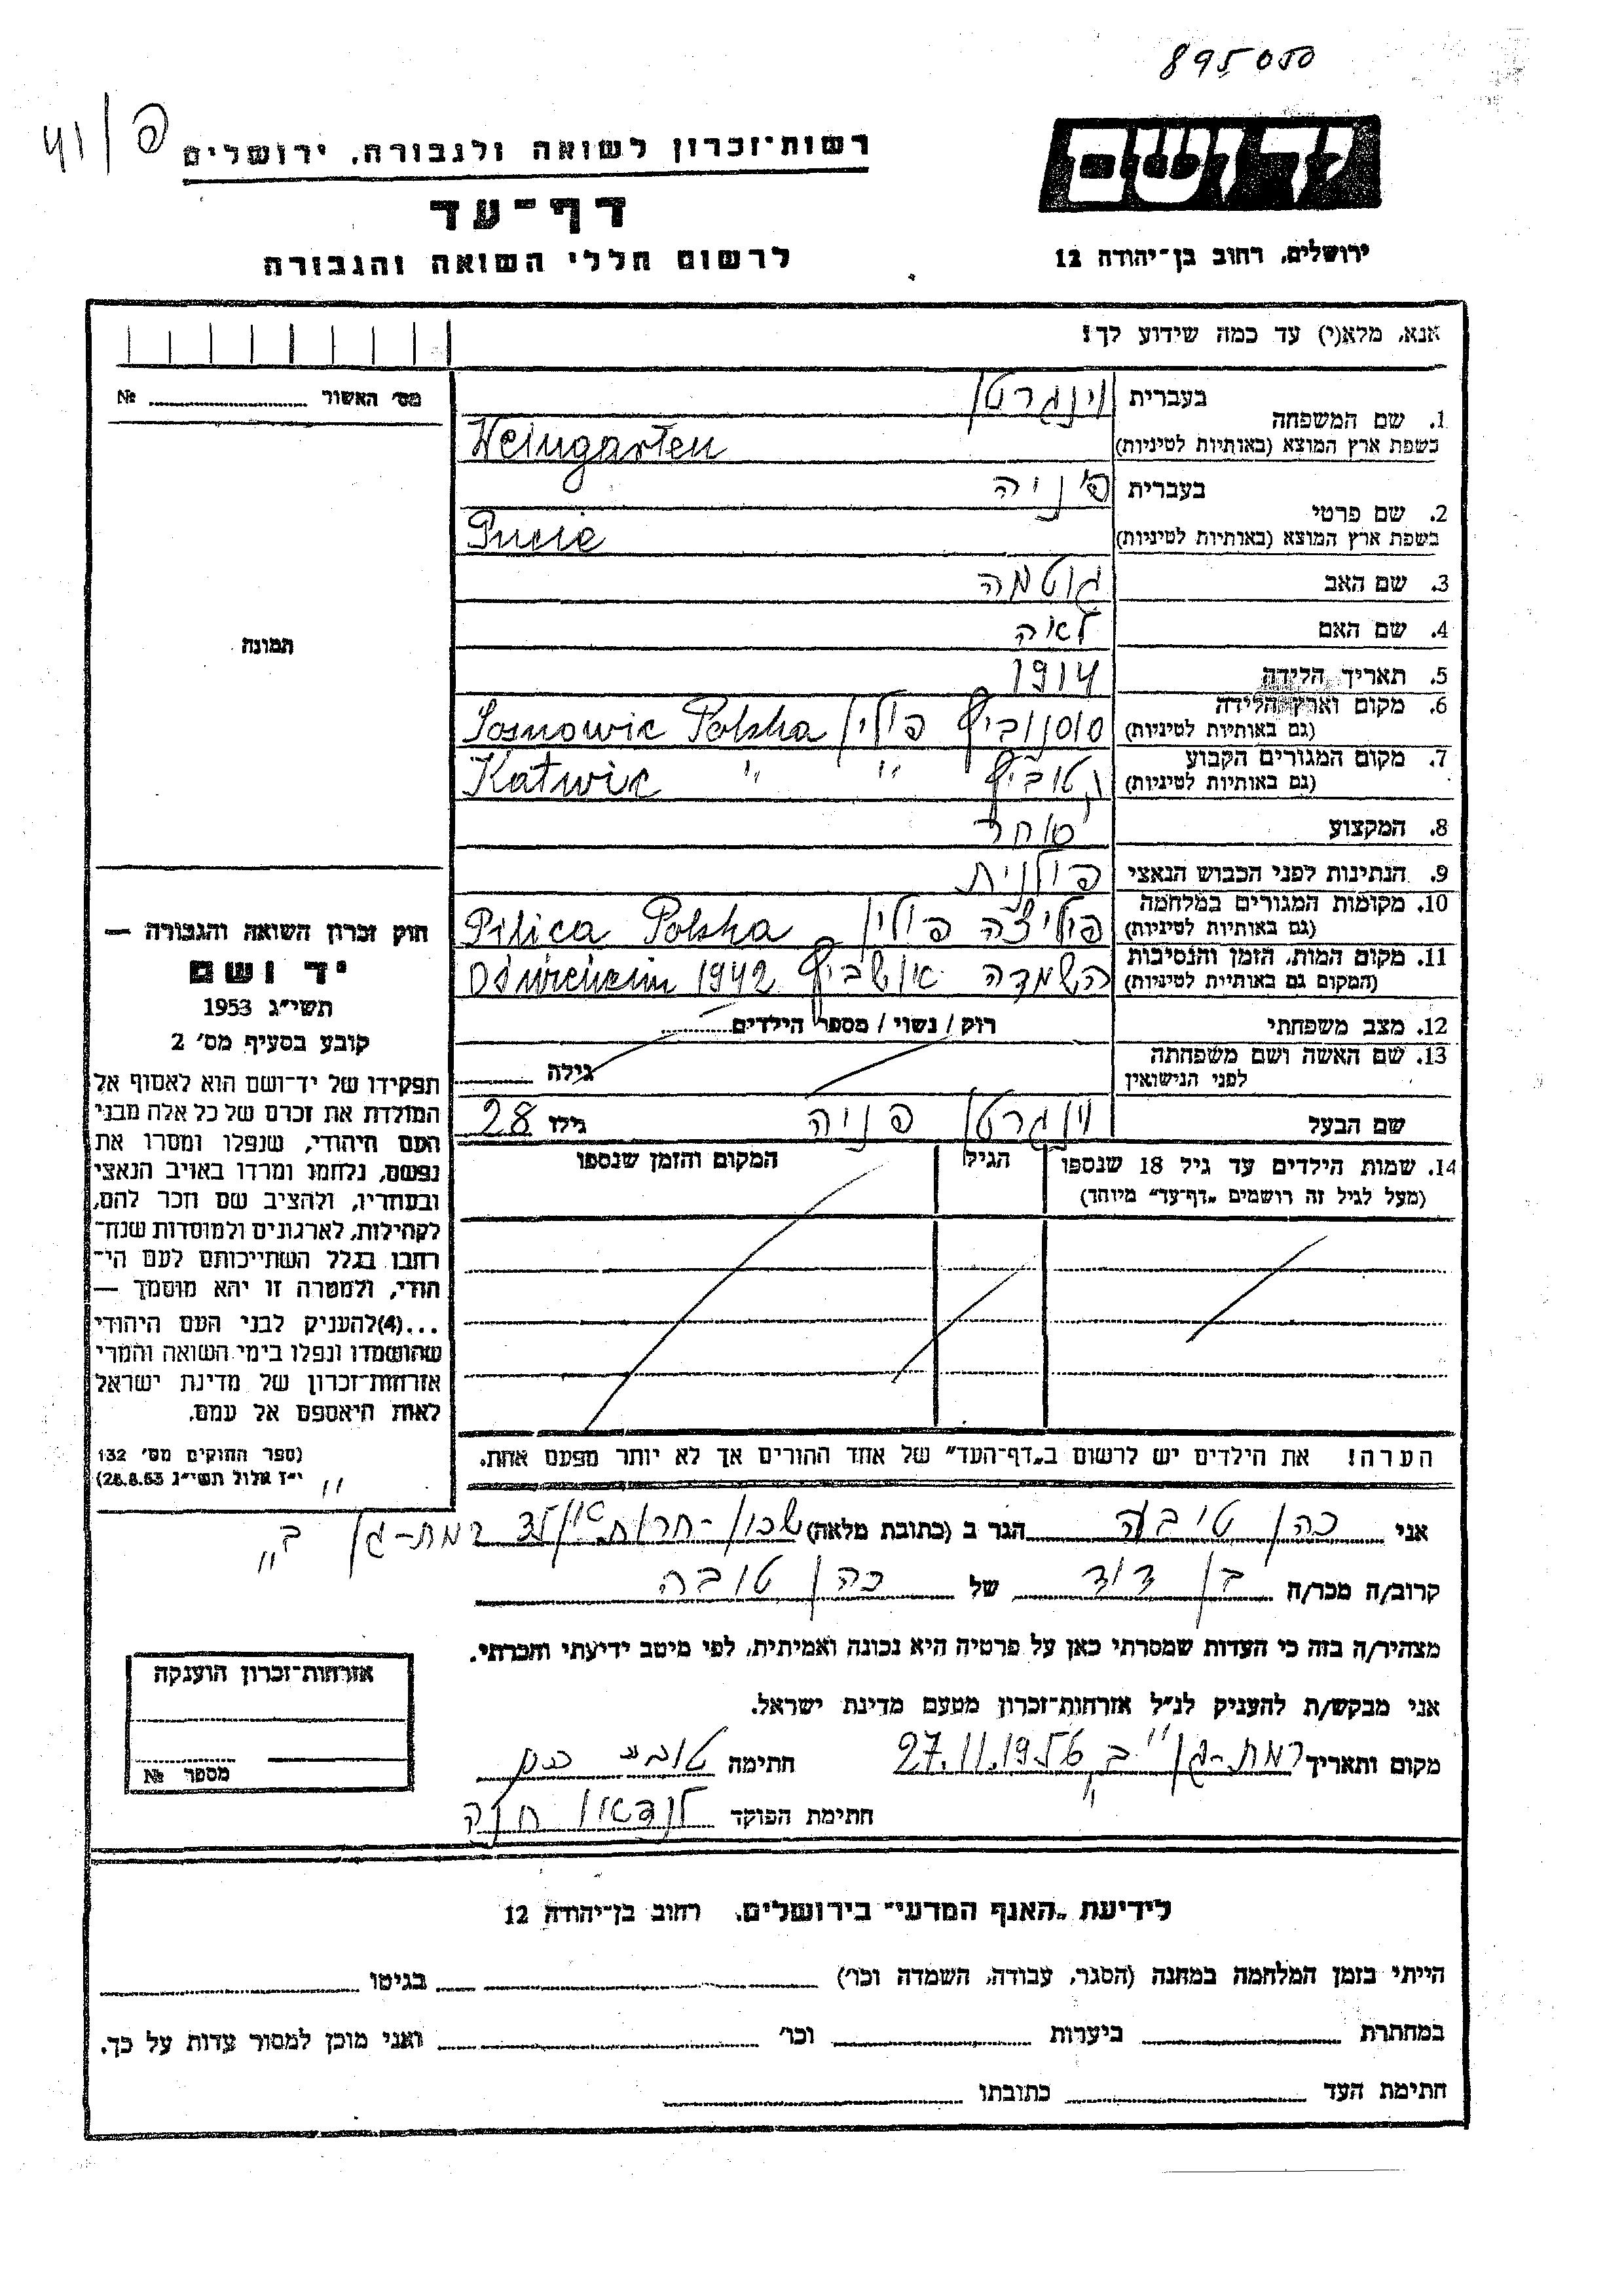 895050
41/פ
רשות־זכרון לשואה ולגבורה, ירושלים
יד ושם
דף־עד
ירושלים, רחוב בן־יהודה 12
לרשום חללי השואה והגבורה
אנא, מלא(י) עד כמה שידוע לך!
מס' האשור № 
1. שם המשפחה
בעברית וינגרטן
בשפת ארץ המוצא (באותיות לטיניות) Weingarten
2. שם פרטי
בעברית פניה
בשפת ארץ המוצא (באותיות לטיניות)
3. שם האב גוטמה
4. שם האם לאה
5. תאריך הלידה 1914
6. מקום וארץ הלידה
(גם באותיות לטיניות) סוסנוביץ פולין Sosnowic Polska
7. מקום המגורים הקבוע
(גם באותיות לטיניות) קטוביץ " " Katwic
8. המקצוע סוחר
9. הנתינות לפני הכבוש הנאצי פולנית
10. מקומות המגורים במלחמה
(גם באותיות לטיניות) פיליצה פולין Pilica Polska
11. מקום המות, הזמן והנסיבות
(המקום גם באותיות לטיניות) השמדה אושביץ 1942
12. מצב משפחתי רוק / נשוי / מספר הילדים
13. שם האשה ושם משפחתה
לפני הנישואין גילה
שם הבעל וינגרטן פניה גילו 28
14. שמות הילדים עד גיל 18 שנספו הגיל המקום והזמן שנספו
(מעל לגיל זה רושמים „דף־עד" מיוחד)
הערה! את הילדים יש לרשום ב„דף־העד" של אחד ההורים אך לא יותר מפעם אחת.
תמונה
חוק זכרון השואה והגבורה —
יד ושם
תשי"ג 1953
קובע בסעיף מס' 2
תפקידו של יד־ושם הוא לאסוף אל
המולדת את זכרם של כל אלה מבני
העם היהודי, שנפלו ומסרו את
נפשם, נלחמו ומרדו באויב הנאצי
ובעוזריו, ולהציב שם וזכר להם,
לקהילות, לארגונים ולמוסדות שנח־
רבו בגלל השתייכותם לעם הי־
הודי, ולמטרה זו יהא מוסמך —
...(4)להעניק לבני העם היהודי
שהושמדו ונפלו בימי השואה והמרי
אזרחות־זכרון של מדינת ישראל
לאות היאספם אל עמם.
(ספר החוקים מס' 132
י"ז אלול תשי"ג 28.8.53)
אני כהן טובה הגר ב (כתובת מלאה) שכון-חרות רמת-גן „ב"
קרוב/ה מכר/ה בן דוד של כהן טובה
מצהיר/ה בזה כי העדות שמסרתי כאן על פרטיה היא נכונה ואמיתית, לפי מיטב ידיעתי והכרתי.
אני מבקש/ת להעניק לנ"ל אזרחות־זכרון מטעם מדינת ישראל.
מקום ותאריך רמת-גן „ב" 27.11.1956 חתימה טובה כהן
חתימת הפוקד לנדאו חנה
אזרחות־זכרון הוענקה
מספר №
לידיעת „האגף המדעי" בירושלים, רחוב בן־יהודה 12
הייתי בזמן המלחמה במחנה (הסגר, עבודה, השמדה וכו') בגיטו
במחתרת ביערות וכו' ואני מוכן למסור עדות על כך.
חתימת העד כתובתו